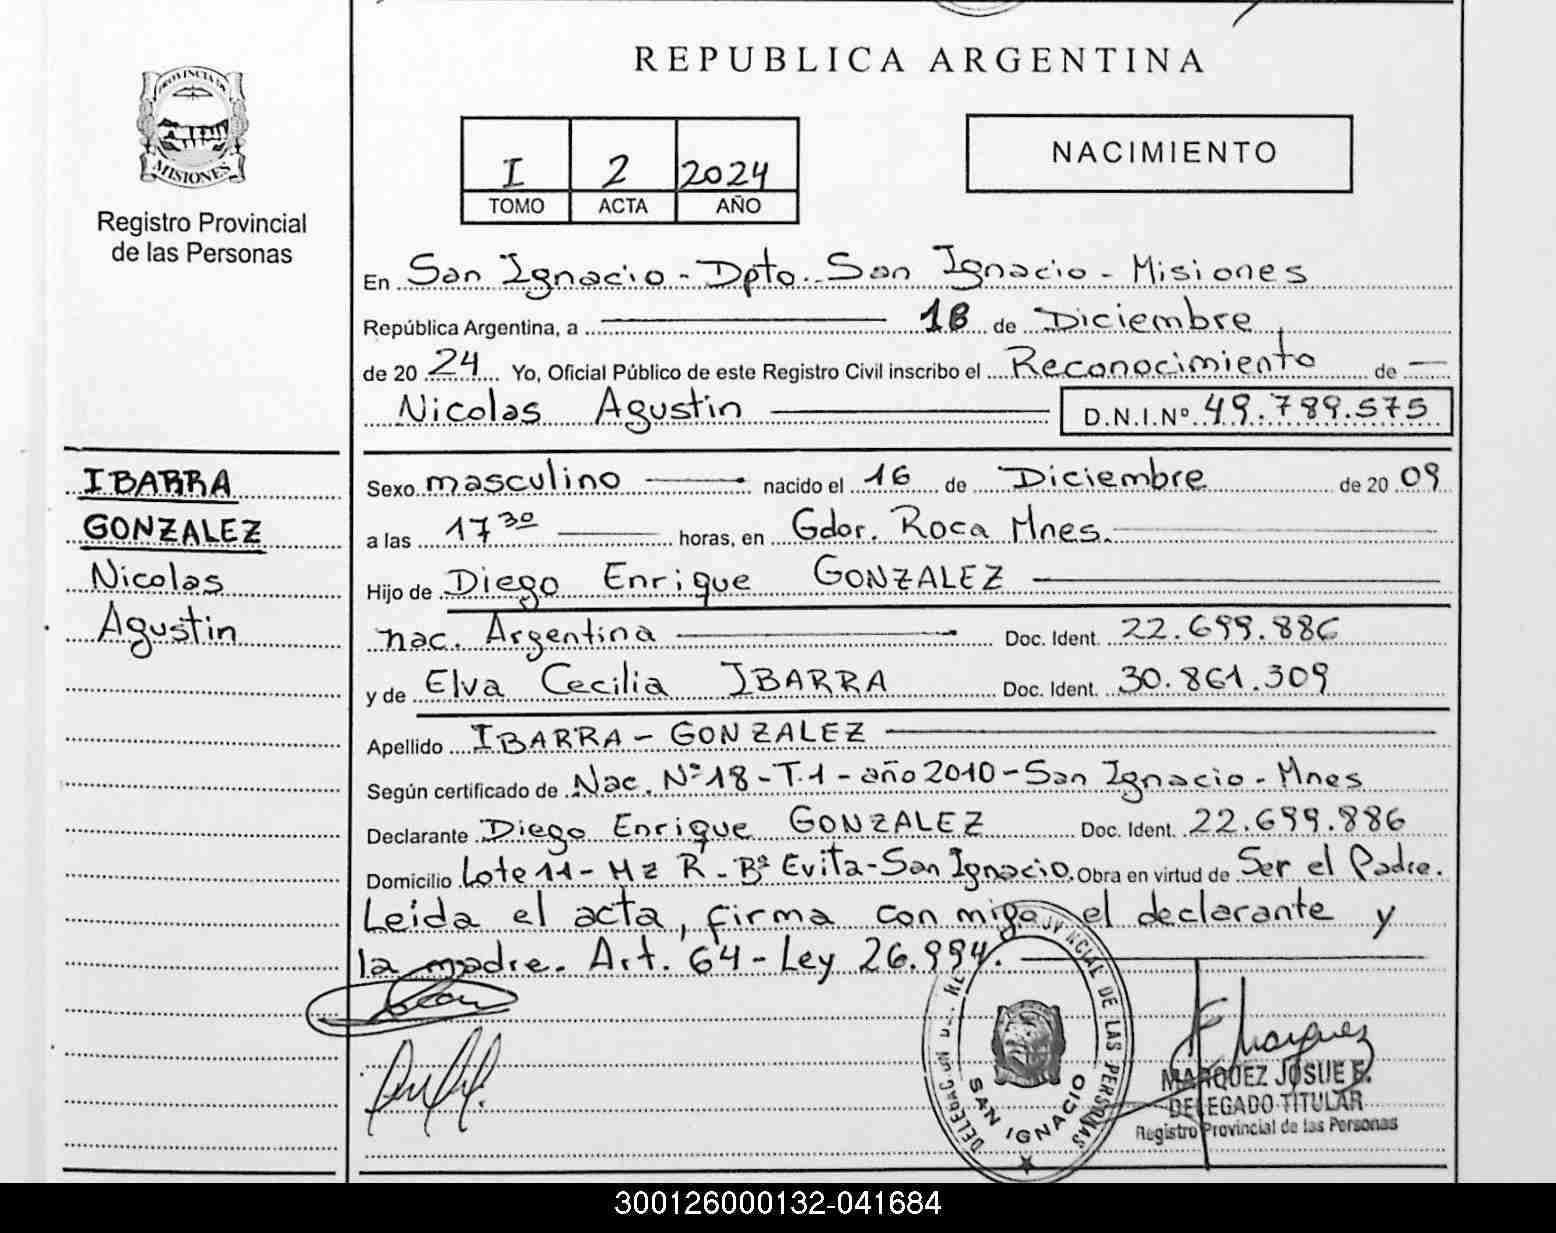 REPUBLICA ARGENTINA
PROVINCIA DE
MISIONES
Registro Provincial
de las Personas
I 2 2024
TOMO ACTA AÑO
NACIMIENTO
En San Ignacio - Dpto. San Ignacio - Misiones
República Argentina, a 18 de Diciembre
de 20 24 Yo, Oficial Público de este Registro Civil inscribo el Reconocimiento de
Nicolas Agustin D.N.I.Nº 49.789.575
IBARRA
GONZALEZ
Nicolas
Agustin
Sexo masculino nacido el 16 de Diciembre de 20 09
a las 17 30 horas, en Gdor. Roca Mnes.
Hijo de Diego Enrique GONZALEZ
nac. Argentina Doc. Ident. 22.699.886
y de Elva Cecilia IBARRA Doc. Ident. 30.861.309
Apellido IBARRA - GONZALEZ
Según certificado de Nac. Nº 18 - T.1 - año 2010 - San Ignacio - Mnes
Declarante Diego Enrique GONZALEZ Doc. Ident. 22.699.886
Domicilio Lote 11 - Mz R - Bº Evita - San Ignacio. Obra en virtud de Ser el Padre.
Leida el acta, firma con migo el declarante y
la madre. Art. 64 - Ley 26.994.
PROVINCIAL DE LAS PERSONAS
SAN IGNACIO
Marquez
MARQUEZ JOSUE E.
DELEGADO TITULAR
Registro Provincial de las Personas
300126000132-041684